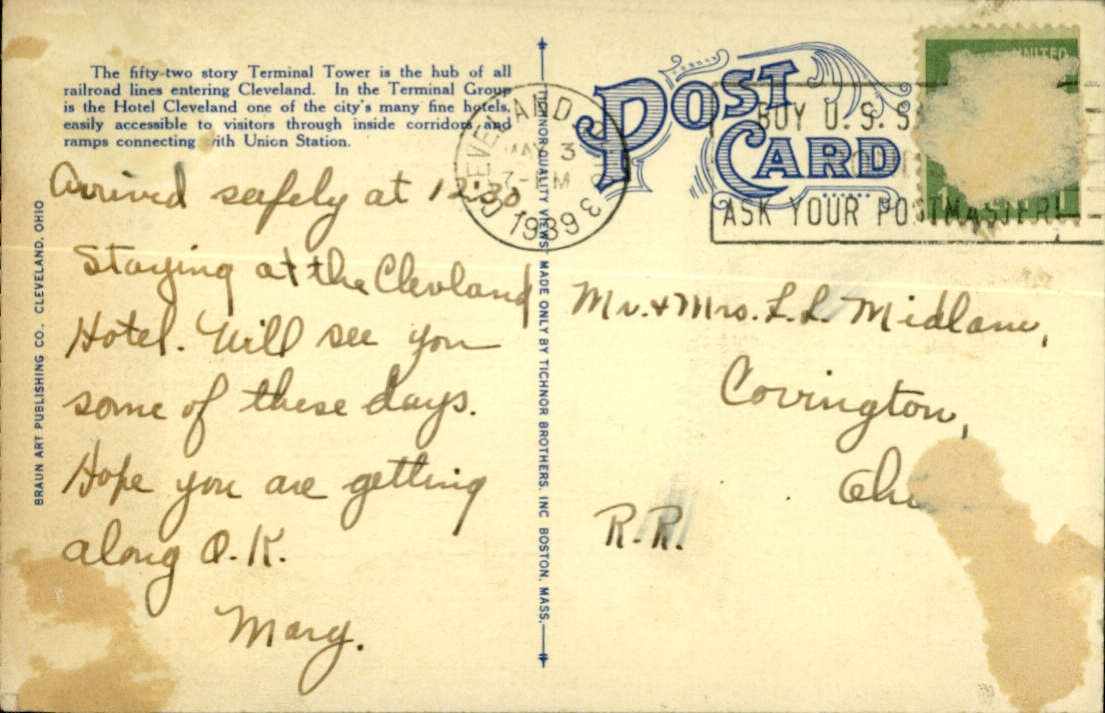 The fifty-two story Terminal Tower is the hub of all
railroad lines entering Cleveland. In the Terminal Group
is the Hotel Cleveland one of the city's many fine hotels,
easily accessible to visitors through inside corridors and
ramps connecting with Union Station.
Arrived safely at 12:30
Staying at the Clevland
Hotel. Will see you
some of these days.
Hope you are getting
along O.K.
Mary.
BRAUN ART PUBLISHING CO., CLEVELAND, OHIO
"TICHNOR QUALITY VIEWS" MADE ONLY BY TICHNOR BROTHERS, INC BOSTON, MASS.
POST
CARD
CLEVELAND
MAY 3
7-PM
1939
3
BUY U.S.S
ASK YOUR POSTMASTER!
UNITED
1
Mr. & Mrs. L.L. Midlam,
Covington,
Ohi
R.R.